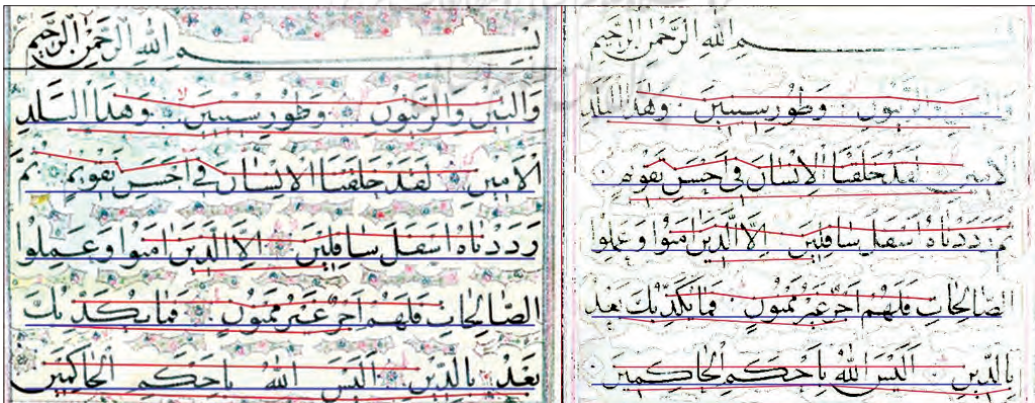 بِسْمِ اللهِ الرَّحْمٰنِ الرَّحِيمِ
وَالزَّيْتُونِ وَطُورِ سِينِينَ وَهٰذَا الْبَلَدِ
الْاَمِينِ لَقَدْ خَلَقْنَا الْاِنْسَانَ فِي اَحْسَنِ تَقْوِيمٍ
ثُمَّ رَدَدْنَاهُ اَسْفَلَ سَافِلِينَ اِلَّا الَّذِينَ اٰمَنُوا وَعَمِلُوا
الصَّالِحَاتِ فَلَهُمْ اَجْرٌ غَيْرُ مَمْنُونٍ فَمَا يُكَذِّبُكَ بَعْدُ
بِالدِّينِ اَلَيْسَ اللهُ بِاَحْكَمِ الْحَاكِمِينَ
بِسْمِ اللهِ الرَّحْمٰنِ الرَّحِيمِ
وَالتِّينِ وَالزَّيْتُونِ وَطُورِ سِينِينَ وَهٰذَا الْبَلَدِ
الْاَمِينِ لَقَدْ خَلَقْنَا الْاِنْسَانَ فِي اَحْسَنِ تَقْوِيمٍ ثُمَّ
رَدَدْنَاهُ اَسْفَلَ سَافِلِينَ اِلَّا الَّذِينَ اٰمَنُوا وَعَمِلُوا
الصَّالِحَاتِ فَلَهُمْ اَجْرٌ غَيْرُ مَمْنُونٍ فَمَا يُكَذِّبُكَ
بَعْدُ بِالدِّينِ اَلَيْسَ اللهُ بِاَحْكَمِ الْحَاكِمِينَ